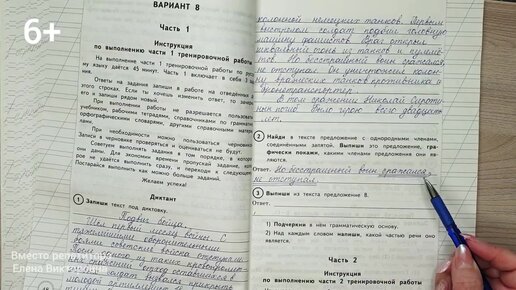 6+
ВАРИАНТ 8
Часть 1
Инструкция
по выполнению части 1 тренировочной работы
На выполнение части 1 тренировочной работы по рус
языку даётся 45 минут. Часть 1 включает в себя 3
ния.
Ответы на задания запиши в работе на отведённых д
этого строках. Если ты хочешь изменить ответ, то зачерк
его и запиши рядом новый.
При выполнении работы не разрешается пользоват
учебником, рабочими тетрадями, справочниками по грамматик
орфографическим словарём, другими справочными матери
лами.
При необходимости можно пользоваться черновико
Записи в черновике проверяться и оцениваться не будут.
Советуем выполнять задания в том порядке, в котором
они даны. Для экономии времени пропускай задание, кото
рое не удаётся выполнить сразу, и переходи к следующему.
Постарайся выполнить как можно больше заданий.
Желаем успеха!
Диктант
1 Запиши текст под диктовку.
Подвиг бойца.
Шёл первый месяц войны. С
тяжелейшими оборонительными
боями советские войска отступали
После одного из таких кровопролит
ных сражений отход оставшихся в
солдат вызвался прикрыть
молодой артиллерист
колонной немецких танков. Первым
выстрелом солдат подбил головную
машину фашистов. Враг открыл
шквальный огонь из танков и пулемё
тов. Но бесстрашный воин сражался,
не отступал. Он уничтожил
вражеских танков противника и
бронетранспортёр.
В том сражении Николай Сироти
нин погиб. Было герою всего двадцать
лет.
2 Найди в тексте предложение с однородными членами,
соединёнными запятой. Выпиши это предложение, гра-
фически покажи, какими членами предложения они яв-
ляются.
Ответ. Но бесстрашный воин сражался,
не отступал.
3 Выпиши из текста предложение 8.
Ответ.
1) Подчеркни в нём грамматическую основу.
2) Над каждым словом напиши, какой частью речи оно
является.
Часть 2
Инструкция
по выполнению части 2 тренировочной работы
Вместо репетитора
Елена Викторовна